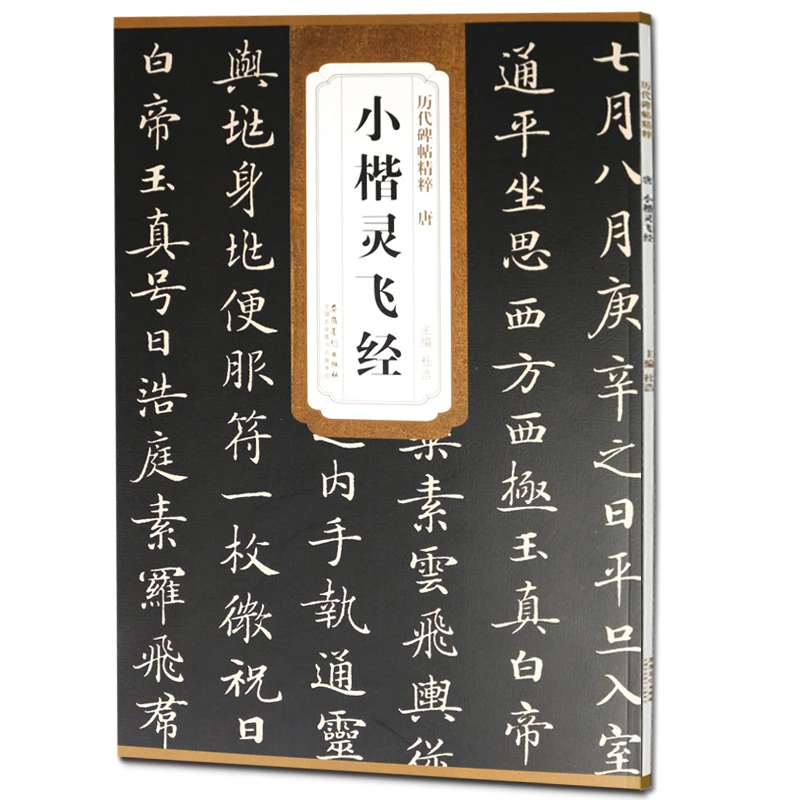 七月八月庚辛之日平旦入室
通平坐思西方西極玉真白帝
素雲飛輿從
内手執通靈
與𡵯身𡵯便服符一枚微祝曰
白帝玉真号曰浩庭素羅飛帬
历代碑帖精粹 唐
小楷灵飞经
主编 杜浩
安徽美术出版社
历代碑帖精粹 唐 小楷灵飞经 主编 杜浩